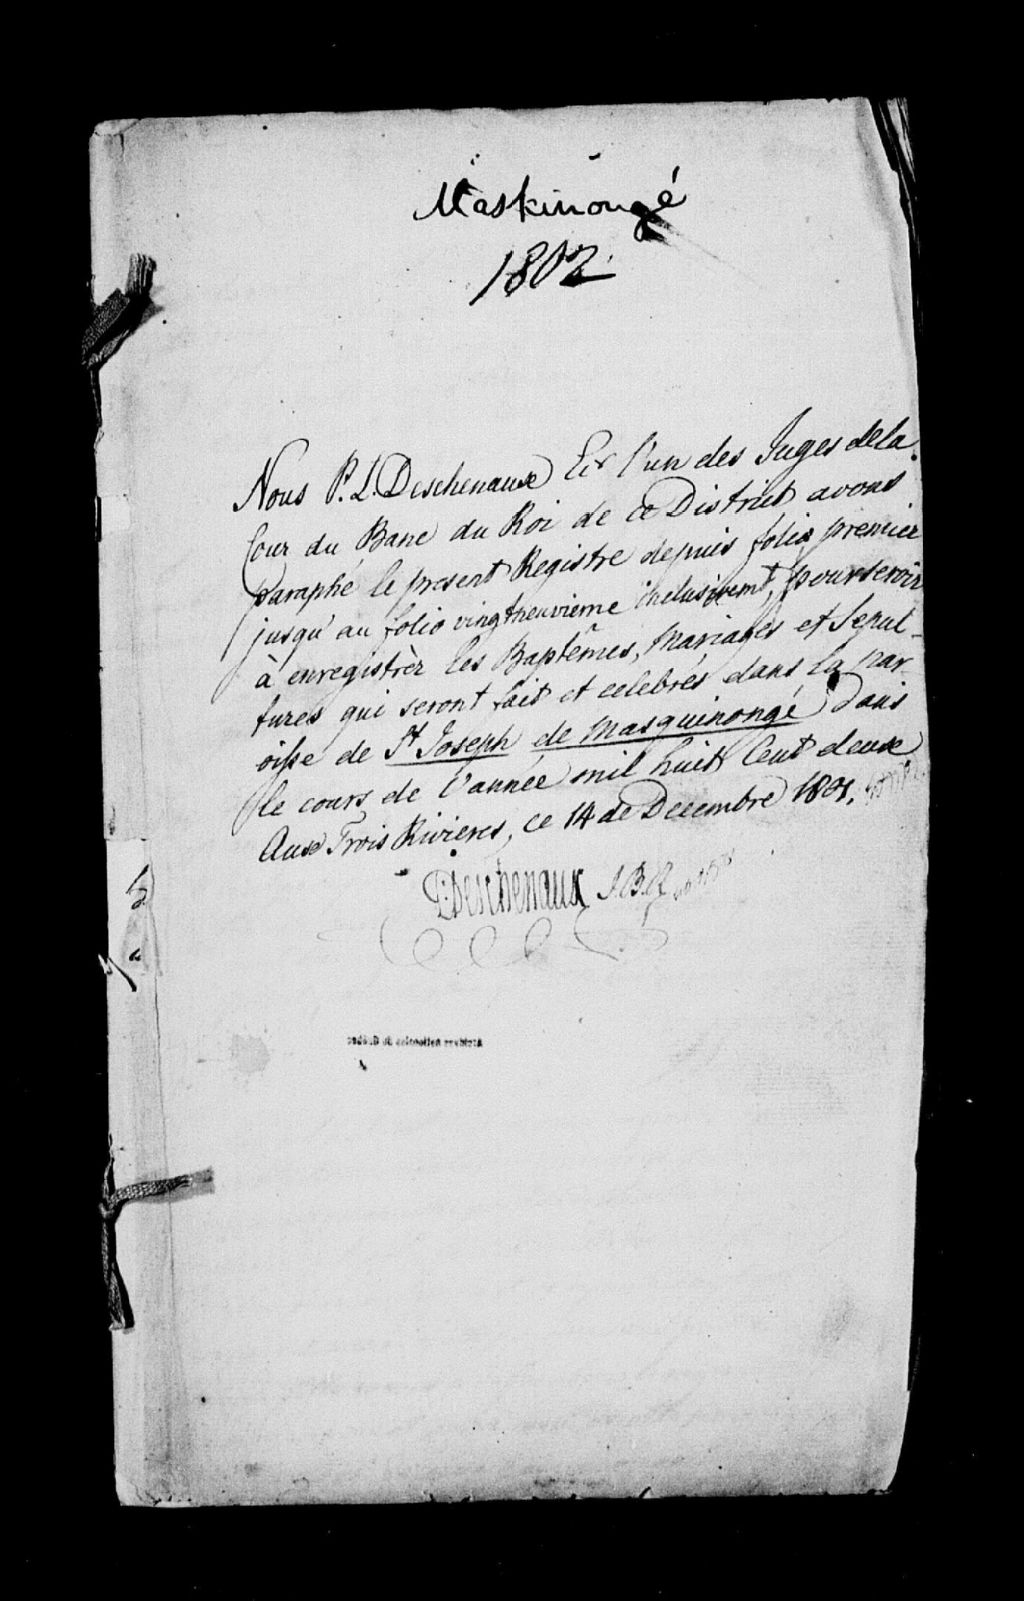 Maskinongé
1802
Nous P. L. Deschenaux Ecr l'un des Juges de la
Cour du Banc du Roi de ce District avons
paraphé le present Registre depuis folio premier
jusqu'au folio vingtneuvieme inclusivemt, pour servir
à enregistrèr les Baptêmes, Mariages et Sepul-
tures qui seront fait et celebrés dans la par
oisse de St Joseph de Masquinongé Dans
le cours de l'année mil huit Cent deux
Aux Trois Rivieres, ce 14 de Decembre 1801.
P: Deschenaux J. B. R
Archives nationales du Québec